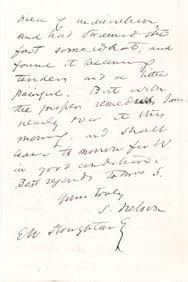 piece of indiscretion
and had strained the
foot somewhat, and
found it becoming
tender and a little
painful. But with
the proper remedies, I am
nearly over it this
morning, and shall
leave to morrow for W.
in good condition.
Best regards to Mrs S.
Yours truly
S. Nelson
E W Stoughton